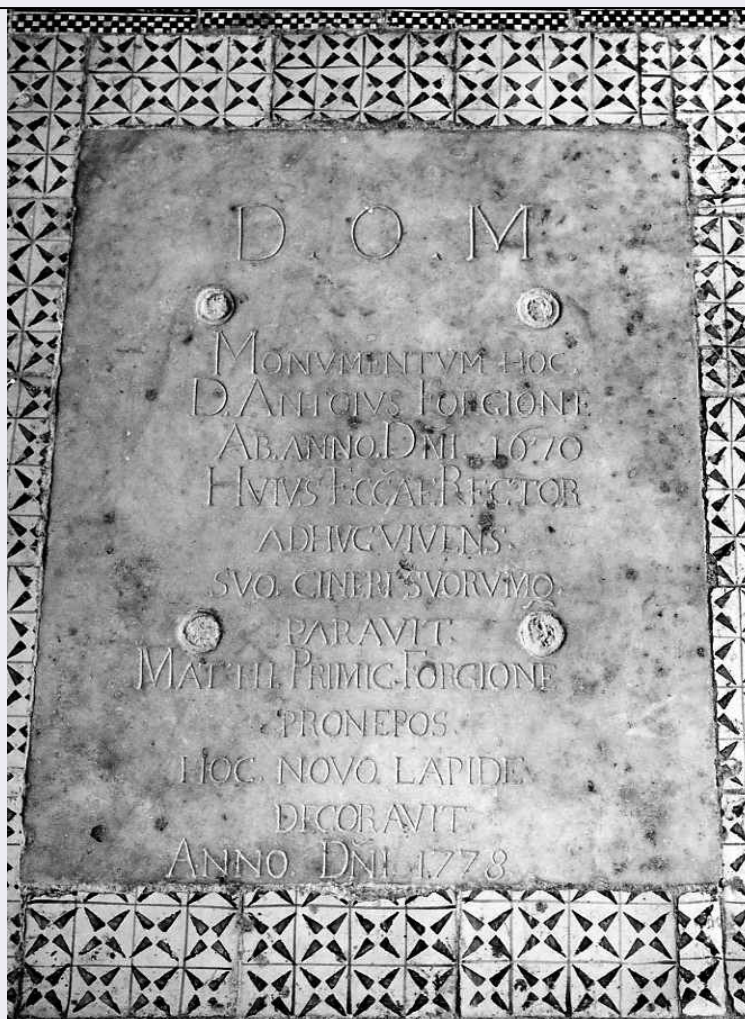 D. O. M
MONVMENTVM HOC.
D. ANTOIVS FORGIONE
AB. ANNO. DNI 1670
HVIVS ECCAE RECTOR
ADHVC VIVENS.
SVO. CINERI SVORVMQ.
PARAVIT.
MATTHI. PRIMIC. FORGIONE
PRONEPOS.
HOC. NOVO. LAPIDE
DECORAVIT
ANNO. DNI 1778